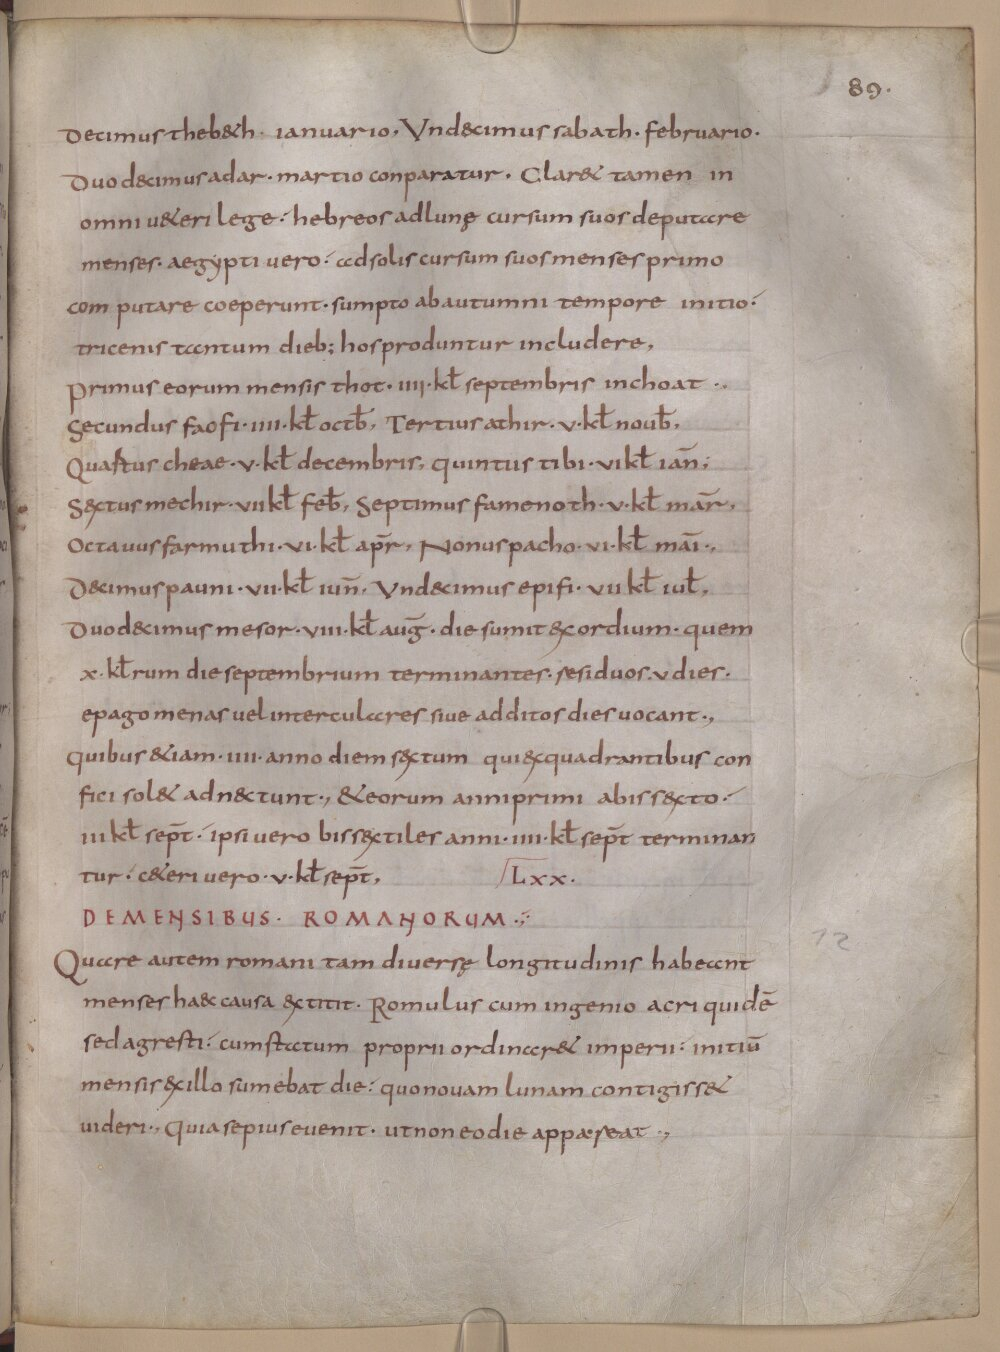 89.
Decimus theb&h· ianuario, Vnd&cimus sabath· februario·
Duod&cimus adar· martio conparatur· Clar& tamen in
omni u&eri lege· hebreos ad lunę cursum suos deputare
menses· aegypti uero· ad solis cursum suos menses primo
computare coeperunt· sumpto ab autumni tempore initio·
tricenis tantum dieb; hos produntur includere,
Primus eorum mensis thot· iiii· kł septembris inchoat·,
Secundus faofi· iiii· kł octb̄, Tertius athir· v· kł noub̄,
Quartus cheae· v· kł decembris, quintus tibi· vi kł ian̄;
S&ctus mechir· vii kł feb̄, Septimus famenoth· v· kł mar̄,
Octauus farmuthi· vi· kł apr̄, Nonus pacho· vi· kł mai̅·,
D&cimus pauni· vii· kł iun̄, Vnd&cimus epifi· vii kł iuł,
Duod&cimus mesor· viii· kł auḡ· die sumit &cordium· quem
x· kłrum die septembrium terminantes· residuos· v dies·
epagomenas uel interculares siue additos dies uocant·,
quibus &iam· iiii· anno diem s&ctum qui &c quadrantibus con
fici sol& adn&ctunt·, & eorum anni primi a biss&cto·
iii kł sep̄t· ipsi uero biss&ctiles anni· iiii· kł sep̄t terminan
tur· c&eri uero· v· kł sep̄t, Lxx·
DE MENSIBUS· ROMANORUM·,
Quare autem romani tam diuersę longitudinis habeant
menses ha&c causa &ctitit· Romulus cum ingenio acri quidē
sed agresti· cum statum proprii ordinar& imperii· initiū
mensis &c illo sumebat die· quo nouam lunam contigiss&
uideri·, Quia sepius euenit· ut non eo die appareat·,
12